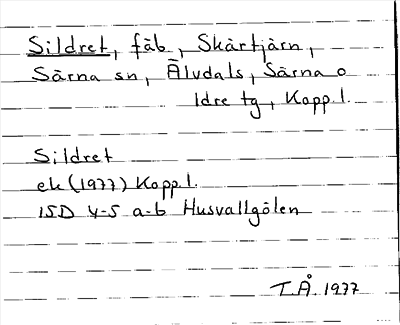 Sildret, fäb, Skärtjärn,
Särna sn, Älvdals, Särna o
Idre tg, Kopp l.
Sildret
ek (1977) Kopp l.
15D 4-5 a-b Husvallgölen
T.Å. 1977